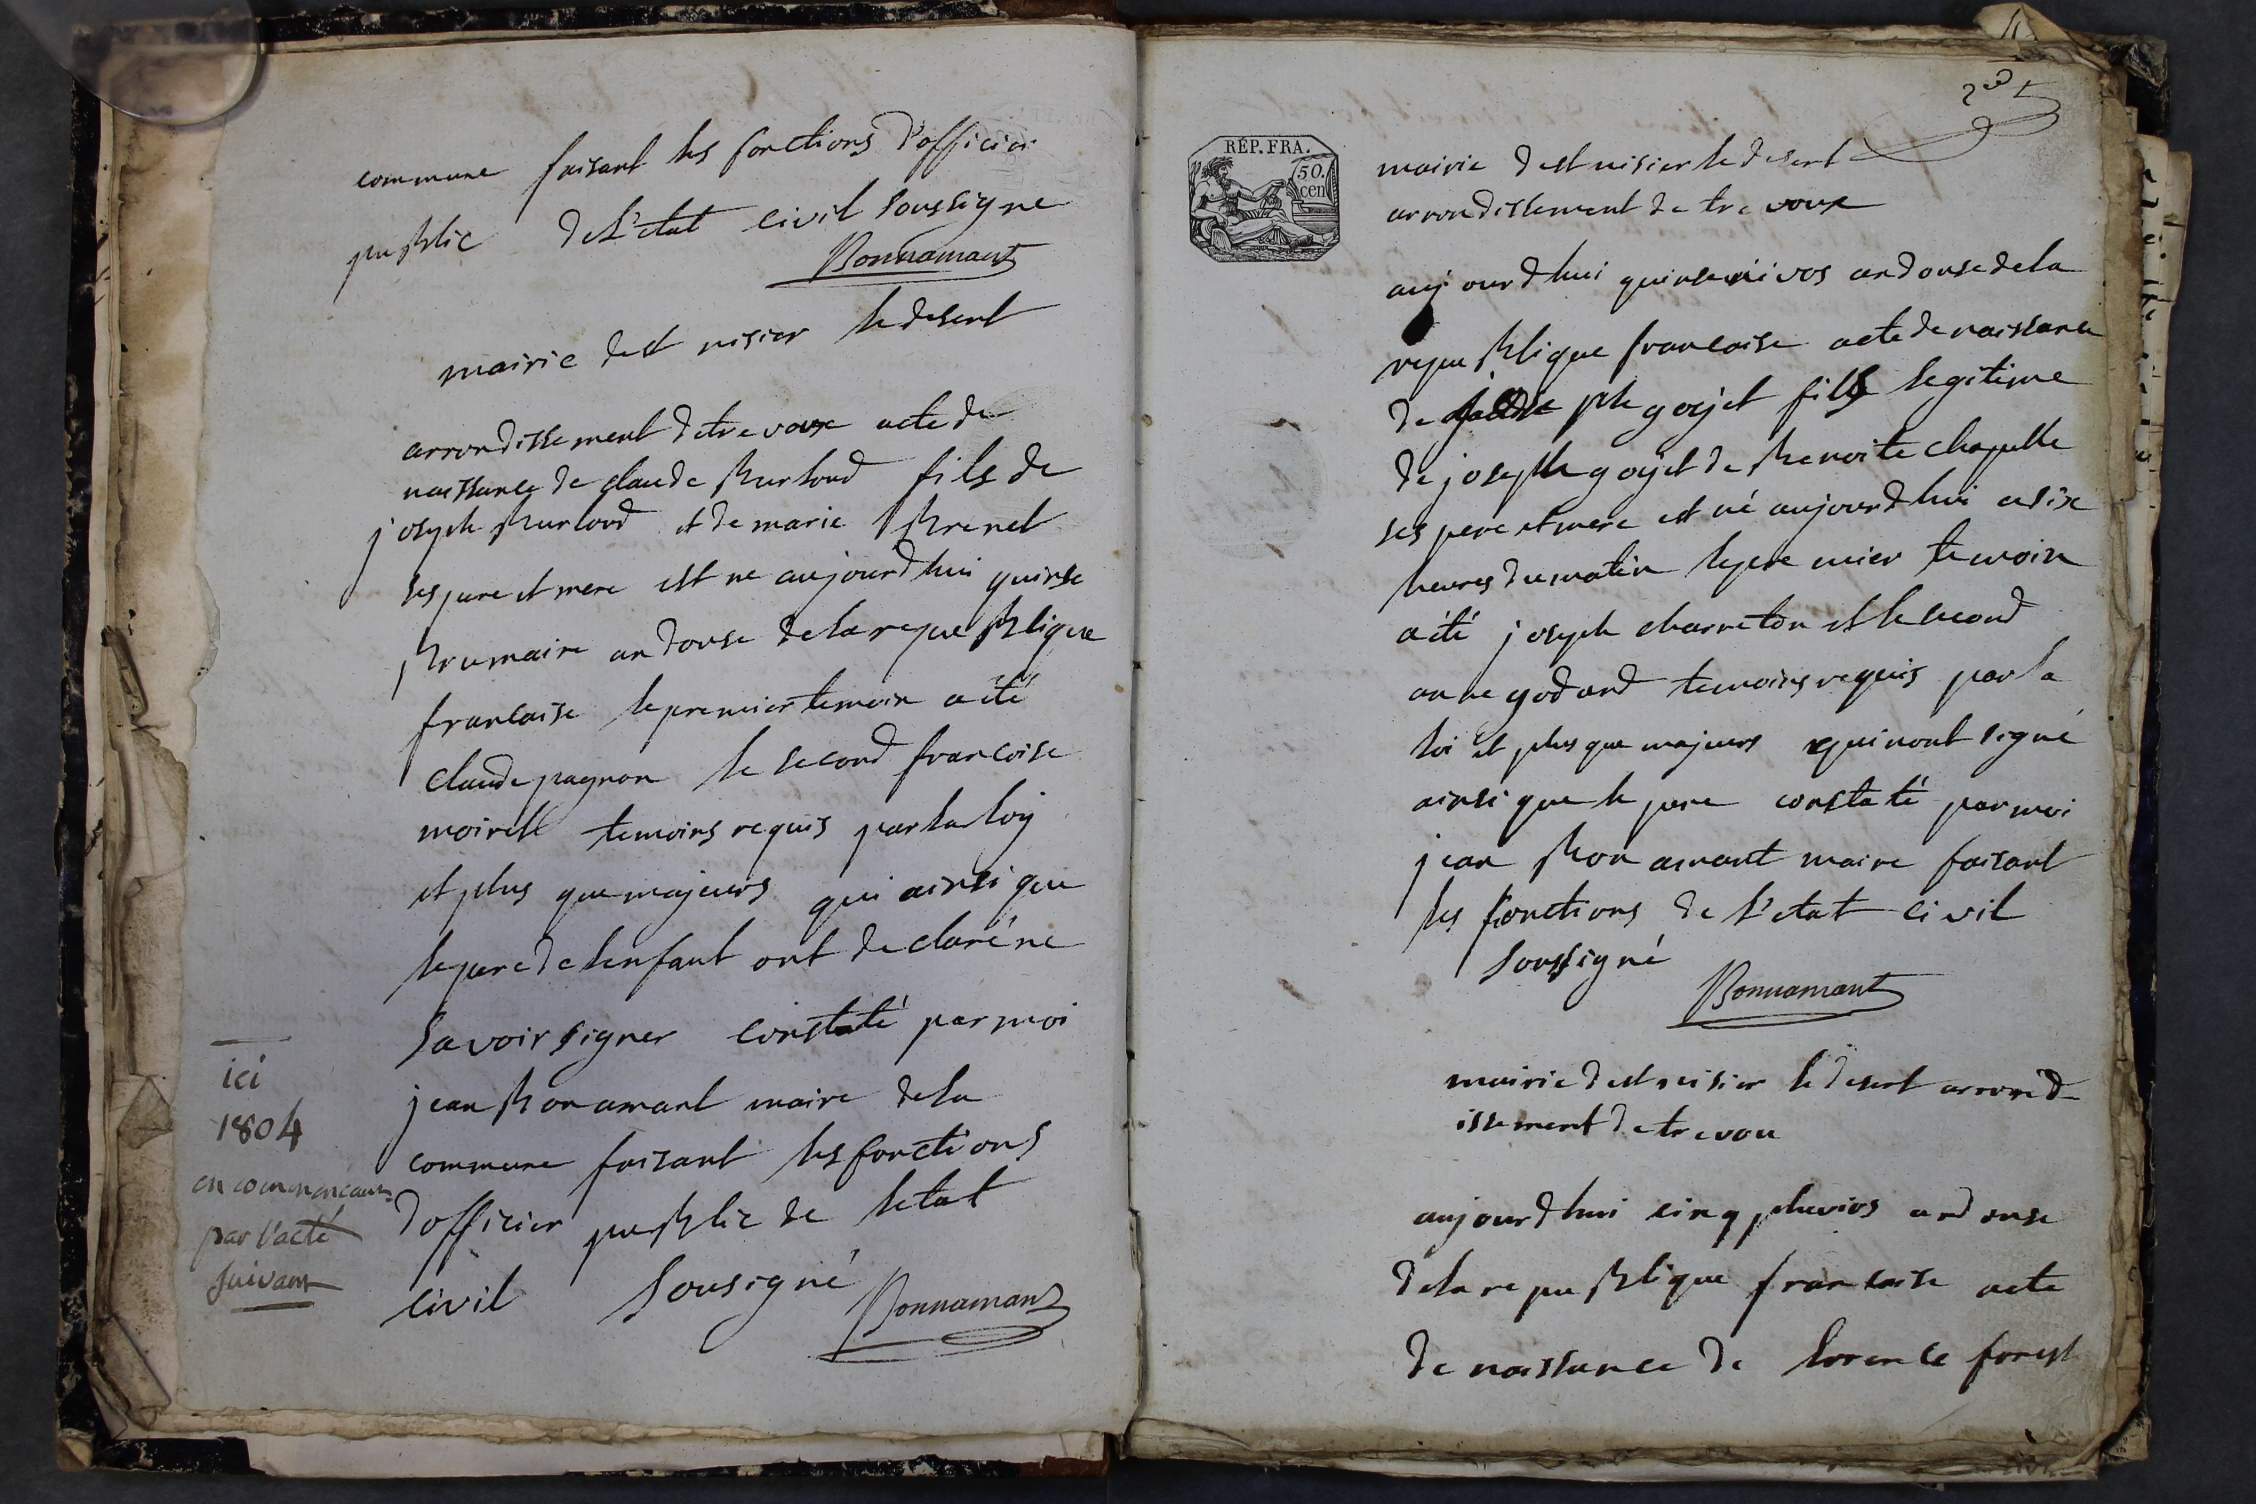 commune faisant les fonctions d'officier
public de l'etat civil soussigne
Bonnamant
mairie de st nisier le desert
arrondissement de trevoux acte de
naissance de claude Burloud fils de
joseph Burloud et de marie Brenet
ses pere et mere est ne aujourd hui quinse
Brumaire an douse de la republique
francaise le premier temoin a été
claude pagnon le second francoise
moirell temoins requis par la loy
et plus que majeurs qui ainsi que
le pere de lenfant ont declaré ne
savoir signer constaté par moi
jean Bonamant maire de la
commune faisant les fonctions
dofficier public de letat
civil sousigné
Bonnamant
ici
1804
en commencant
par l'acte
suivant
RÉP. FRA.
50.
cen
mairie de st nisier le desert
arrondissement de trevoux
aujourdhui quinse nivos an douse de la
republique francaise acte de naissance
de jph goyjet fils legitime
de joseph goyet de Benoite chapelle
ses pere et mere est né aujourdhui a six
heures du matin le premier temoin
a été joseph charreton et le second
anne godard temoins requis par la
loi et plus que majeurs qui nont signé
ainsi que le pere constaté par moi
jean Bonamant maire faisant
les fonctions de l'etat civil
soussigné
Bonnamant
mairie de st nisier le desert arrond-
issement de trevou
aujourdhui cinq pluvios an douse
de la republique francaise acte
de naissance de lorence forest